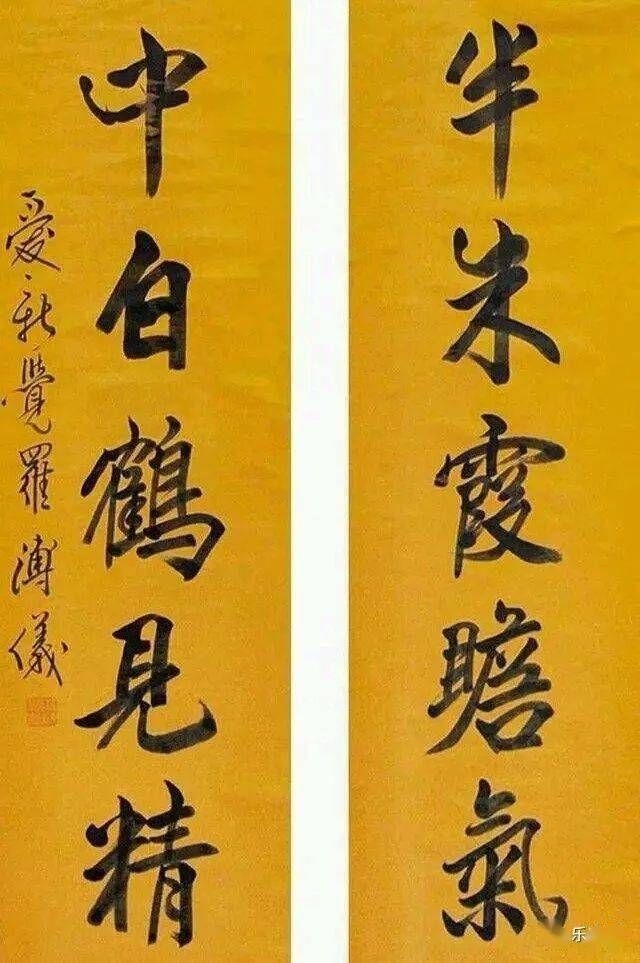 半朱霞瞻氣
中白鶴見精
愛新覺羅溥儀
乐